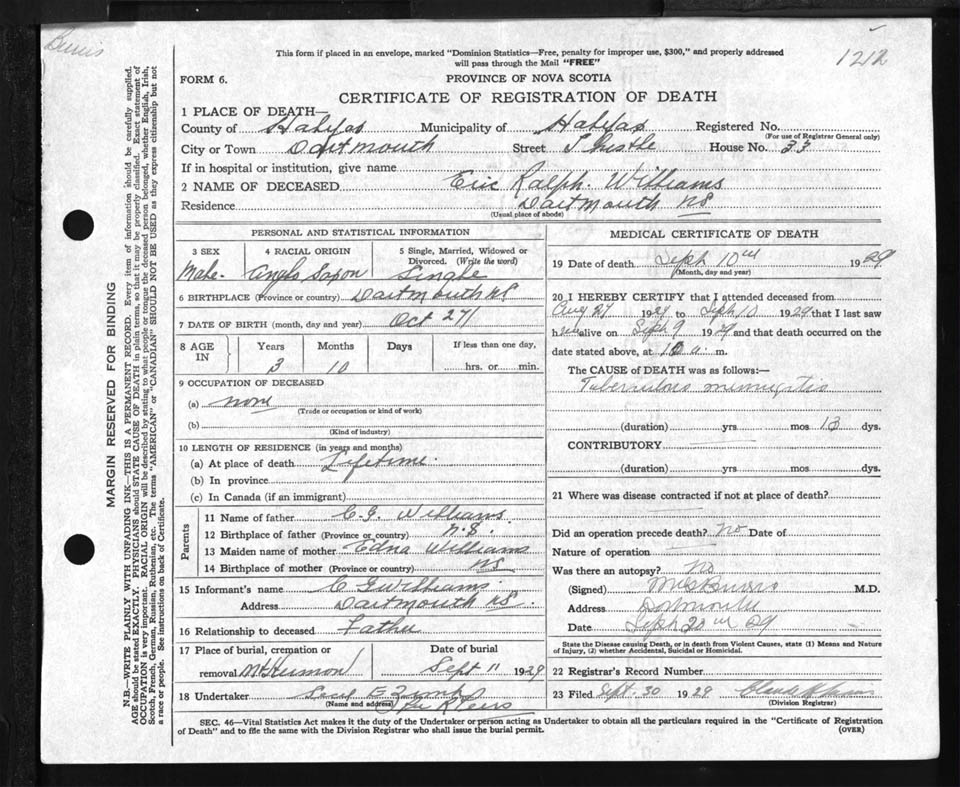 Burris
1212
This form if placed in an envelope, marked "Dominion Statistics—Free, penalty for improper use, $300," and properly addressed
will pass through the Mail "FREE"
FORM 6.
PROVINCE OF NOVA SCOTIA
CERTIFICATE OF REGISTRATION OF DEATH
1 PLACE OF DEATH—
County of Halifax Municipality of Halifax Registered No.
(For use of Registrar General only)
City or Town Dartmouth Street Thistle House No. 33
If in hospital or institution, give name
2 NAME OF DECEASED Eric Ralph Williams
Residence Dartmouth NS
(Usual place of abode)
PERSONAL AND STATISTICAL INFORMATION
3 SEX
Male.
4 RACIAL ORIGIN
Anglo Saxon
5 Single, Married, Widowed or
Divorced. (Write the word)
Single
6 BIRTHPLACE (Province or country) Dartmouth NS
7 DATE OF BIRTH (month, day and year) Oct 27/
8 AGE
IN
Years Months Days If less than one day,
3 10 hrs. or min.
9 OCCUPATION OF DECEASED
(a) none
(Trade or occupation or kind of work)
(b)
(Kind of industry)
10 LENGTH OF RESIDENCE (in years and months)
(a) At place of death Lifetime.
(b) In province
(c) In Canada (if an immigrant)
Parents
11 Name of father C.G. Williams
12 Birthplace of father (Province or country) N.S.
13 Maiden name of mother Edna Williams
14 Birthplace of mother (Province or country) NS
15 Informant's name C G Williams
Address Dartmouth NS.
16 Relationship to deceased Father
17 Place of burial, cremation or
removal Mt Hermon
Date of burial
Sept 11 1929
18 Undertaker
(Name and address)
MEDICAL CERTIFICATE OF DEATH
19 Date of death Sept 10th 1929
(Month, day and year)
20 I HEREBY CERTIFY that I attended deceased from
Aug 27 1929 to Sept 10 1929 that I last saw
him alive on Sept 9 1929 and that death occurred on
date stated above, at 10 a. m.
The CAUSE of DEATH was as follows:—
Tuberculous meningitis
(duration) yrs mos 13 dys.
CONTRIBUTORY
(duration) yrs mos dys.
21 Where was disease contracted if not at place of death?
Did an operation precede death? No Date of
Nature of operation
Was there an autopsy? No
(Signed) Burris M.D.
Address Dartmouth
Date Sept 20th 29
State the Disease causing Death, or in death from Violent Causes, state (1) Means and Nature
of Injury, (2) whether Accidental, Suicidal or Homicidal.
22 Registrar's Record Number
23 Filed Sept. 30 1929
(Division Registrar)
SEC. 46—Vital Statistics Act makes it the duty of the Undertaker or person acting as Undertaker to obtain all the particulars required in the "Certificate of Registration
of Death" and to file the same with the Division Registrar who shall issue the burial permit.
(OVER)
MARGIN RESERVED FOR BINDING
N.B.—WRITE PLAINLY WITH UNFADING INK—THIS IS A PERMANENT RECORD. Every item of information should be carefully supplied.
AGE should be stated EXACTLY. PHYSICIANS should STATE CAUSE OF DEATH in plain terms, so that it may be properly classified. Exact statement of
OCCUPATION is very important. RACIAL ORIGIN will be described by stating to what people or tongue the deceased person belonged, whether English, Irish,
Scotch, French, German, Russian, Ruthenian, etc. The terms "AMERICAN" or "CANADIAN" SHOULD NOT BE USED as they express citizenship but not
a race or people. See instructions on back of Certificate.